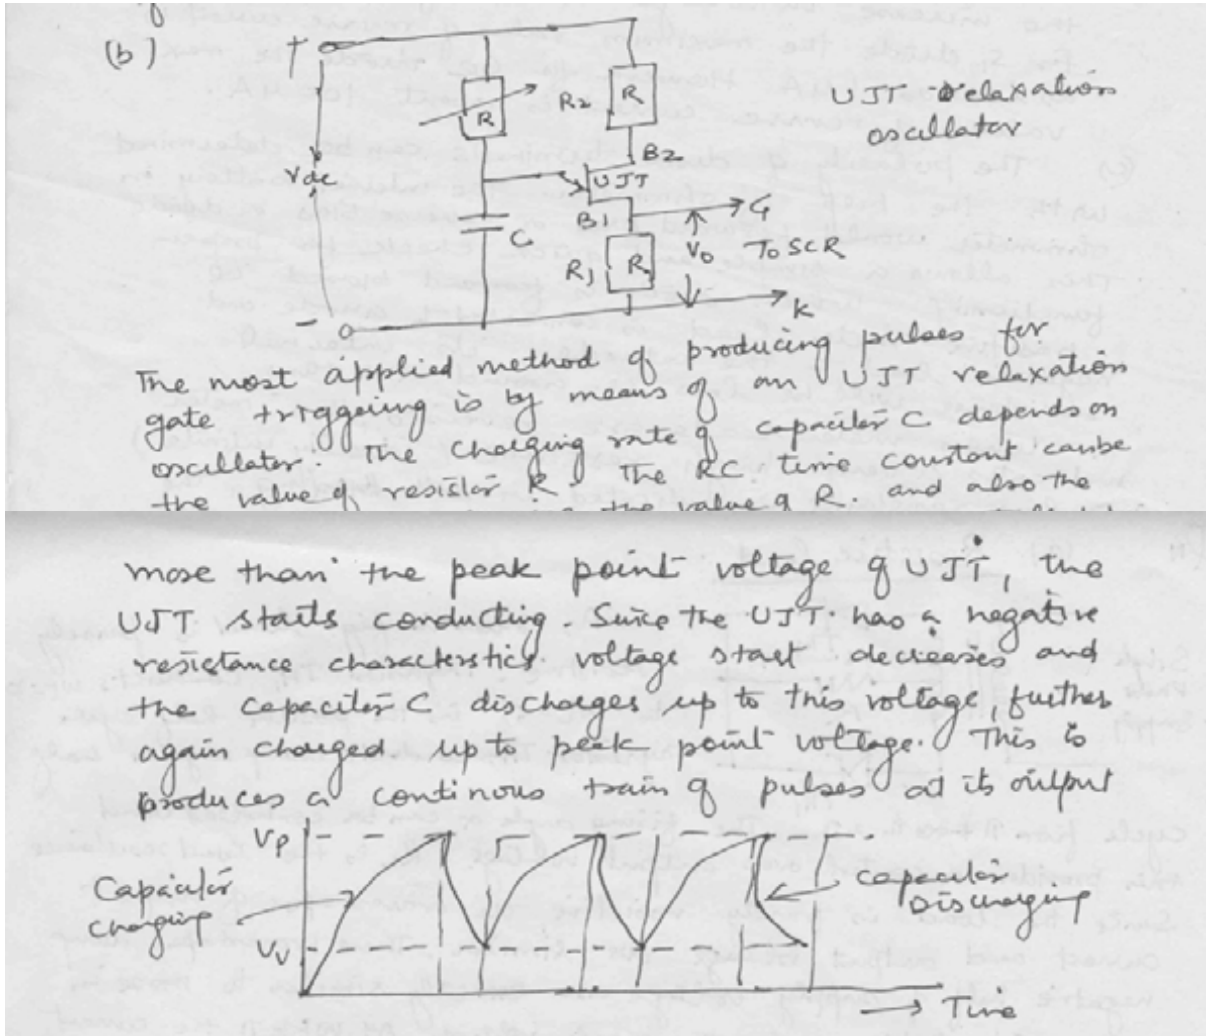 (b)
+
R
R2
R
UJT relaxation
oscillator
B2
Vdc
UJT
B1
G
C
R1
R
Vo
To SCR
-
K
The most applied method of producing pulses for
gate triggering is by means of an UJT relaxation
oscillator. The charging rate of capacitor C depends on
the value of resistor R. The RC time constant can be
the value of R. and also the
more than the peak point voltage of UJT, the
UJT starts conducting. Since the UJT has a negative
resistance characterstics voltage start decreases and
the capacitor C discharges up to this voltage, further
again charged up to peak point voltage. This is
produces a continous train of pulses at its output
VP
Capacitor
charging
capacitor
Discharging
Vv
Time